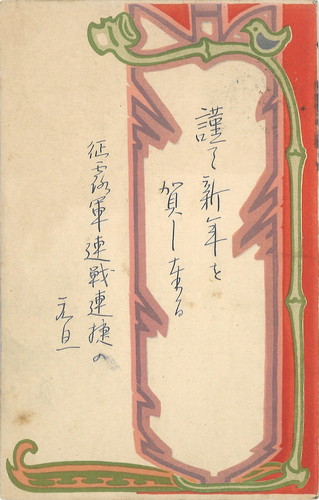 謹て新年を
賀し奉る
征露軍連戦連捷の
元旦